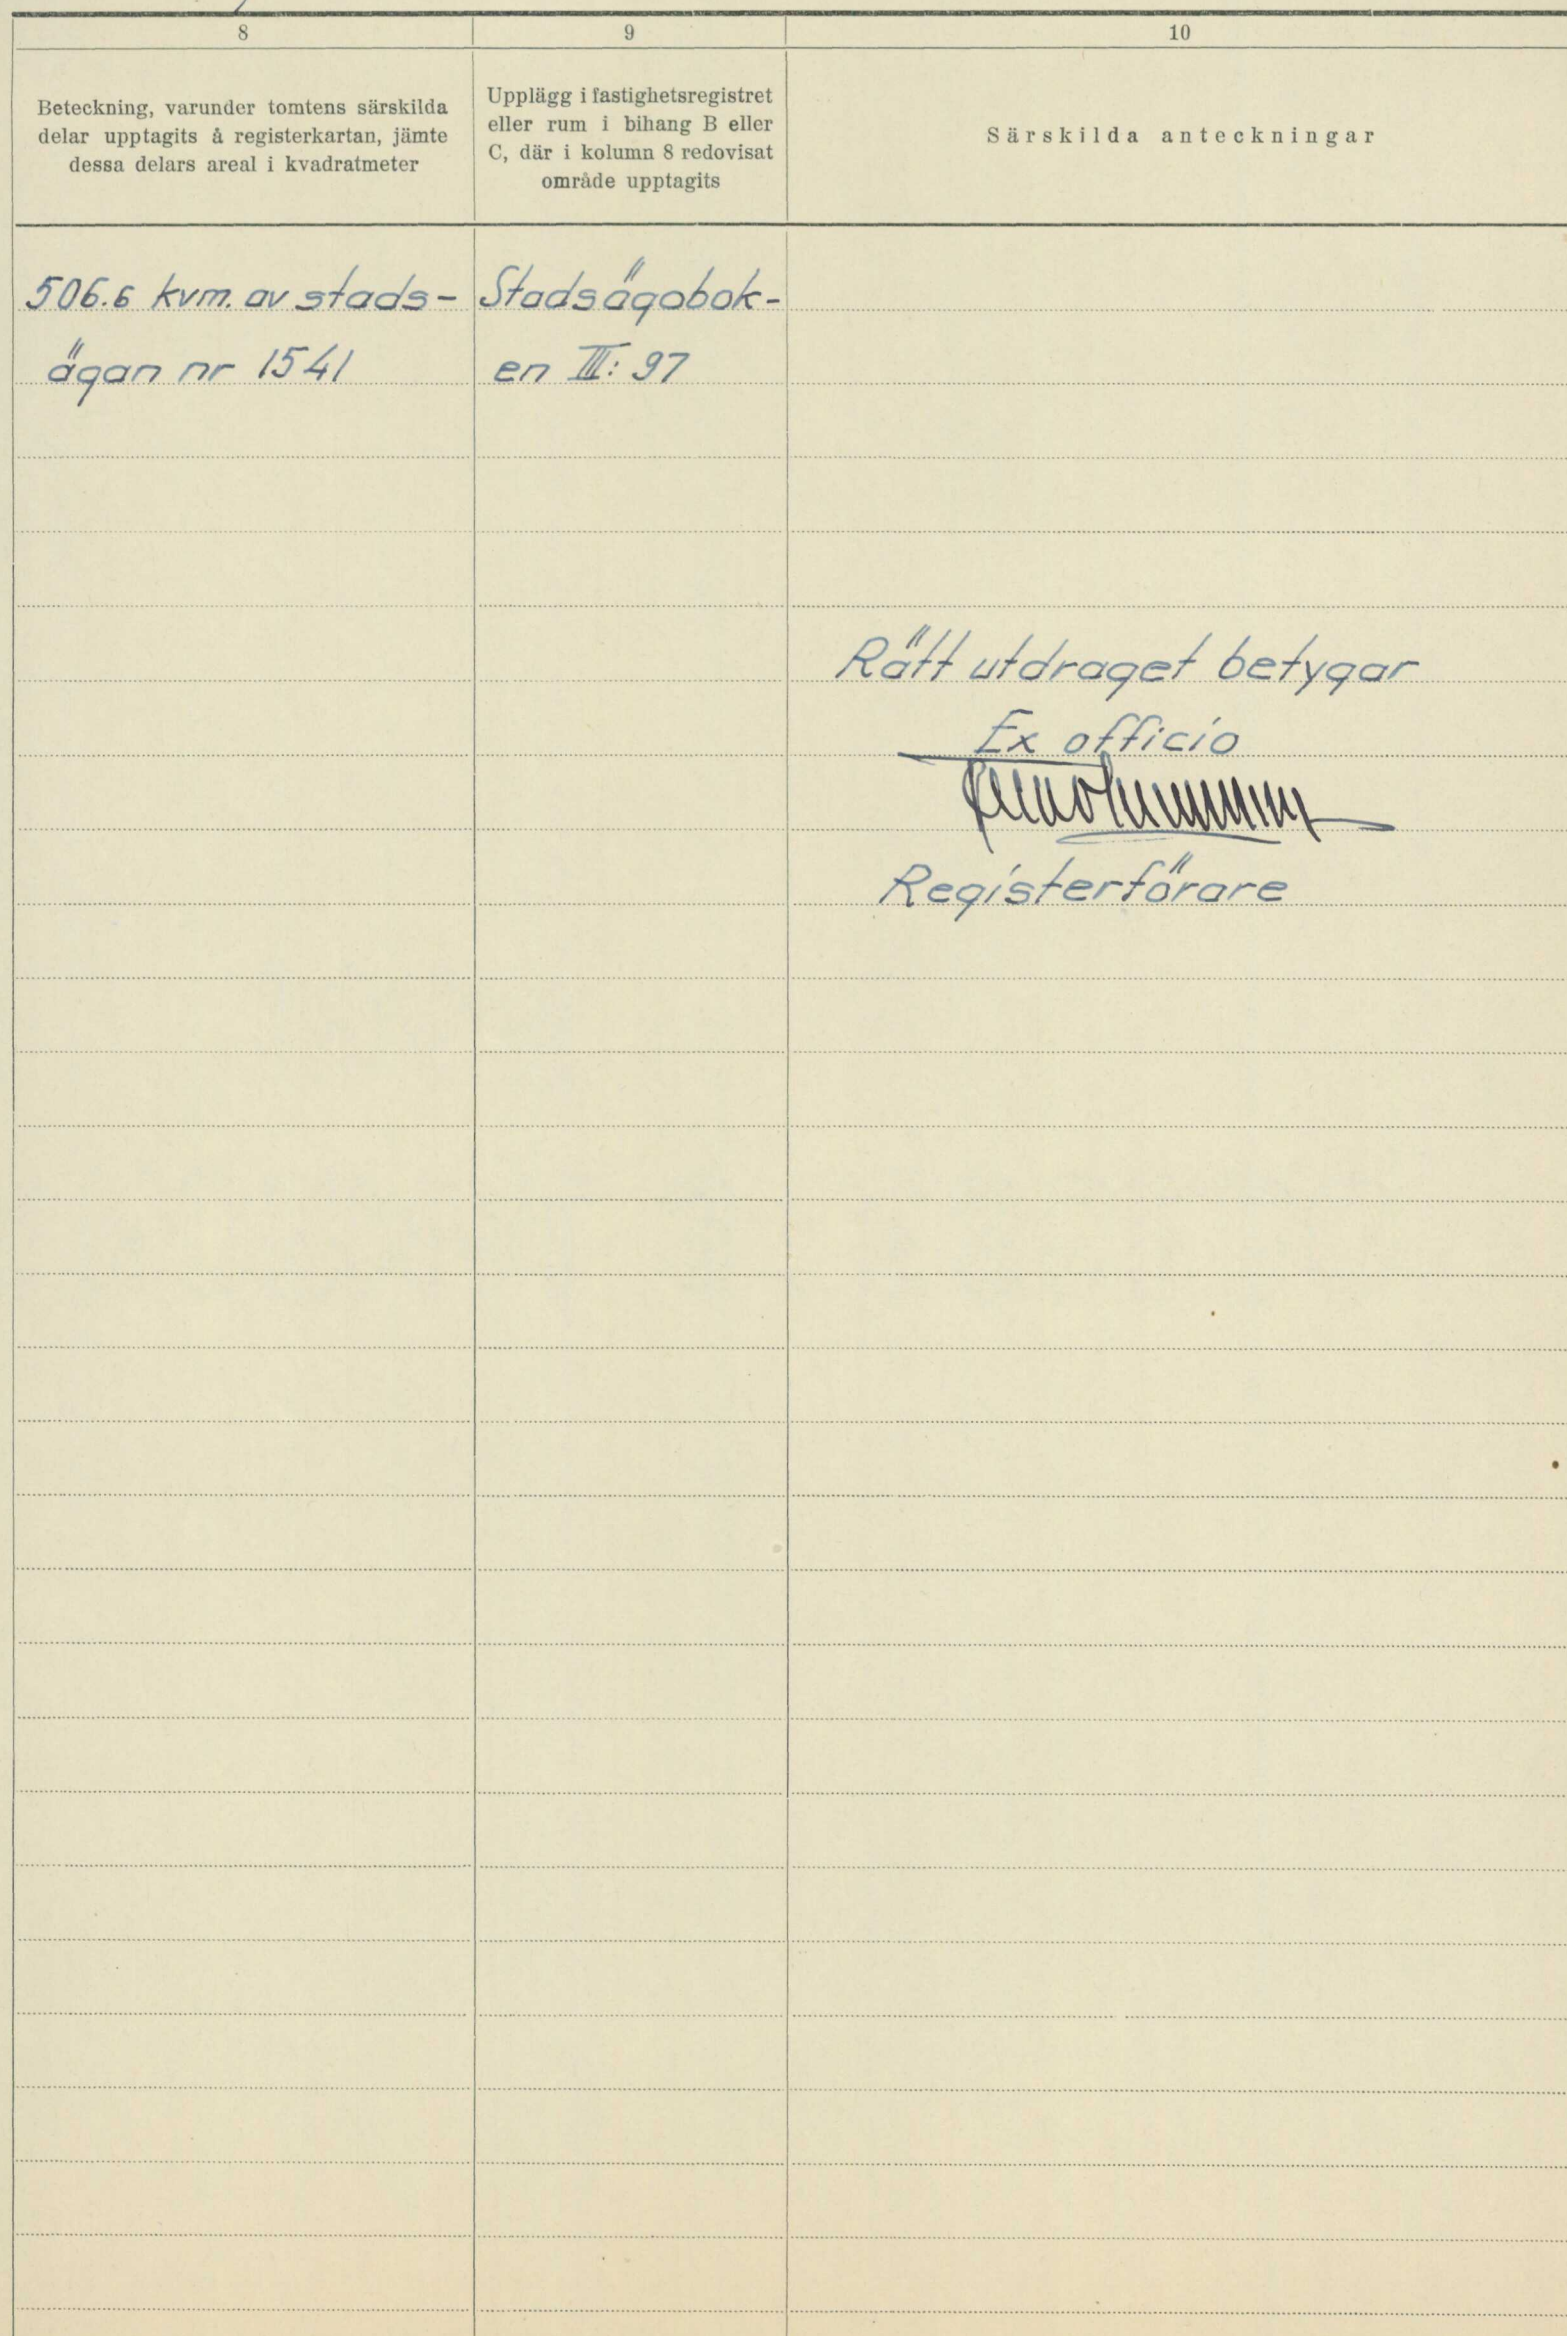 8
9
10
Beteckning, varunder tomtens särskilda
delar upptagits å registerkartan, jämte
dessa delars areal i kvadratmeter
Upplägg i fastighetsregistret
eller rum i bihang B eller
C, där i kolumn 8 redovisat
område upptagits
Särskilda anteckningar
506.6 kvm. av stads-
ägan nr 1541
Stadsägobok-
en III: 97
Rätt utdraget betygar
Ex officio
Registerförare